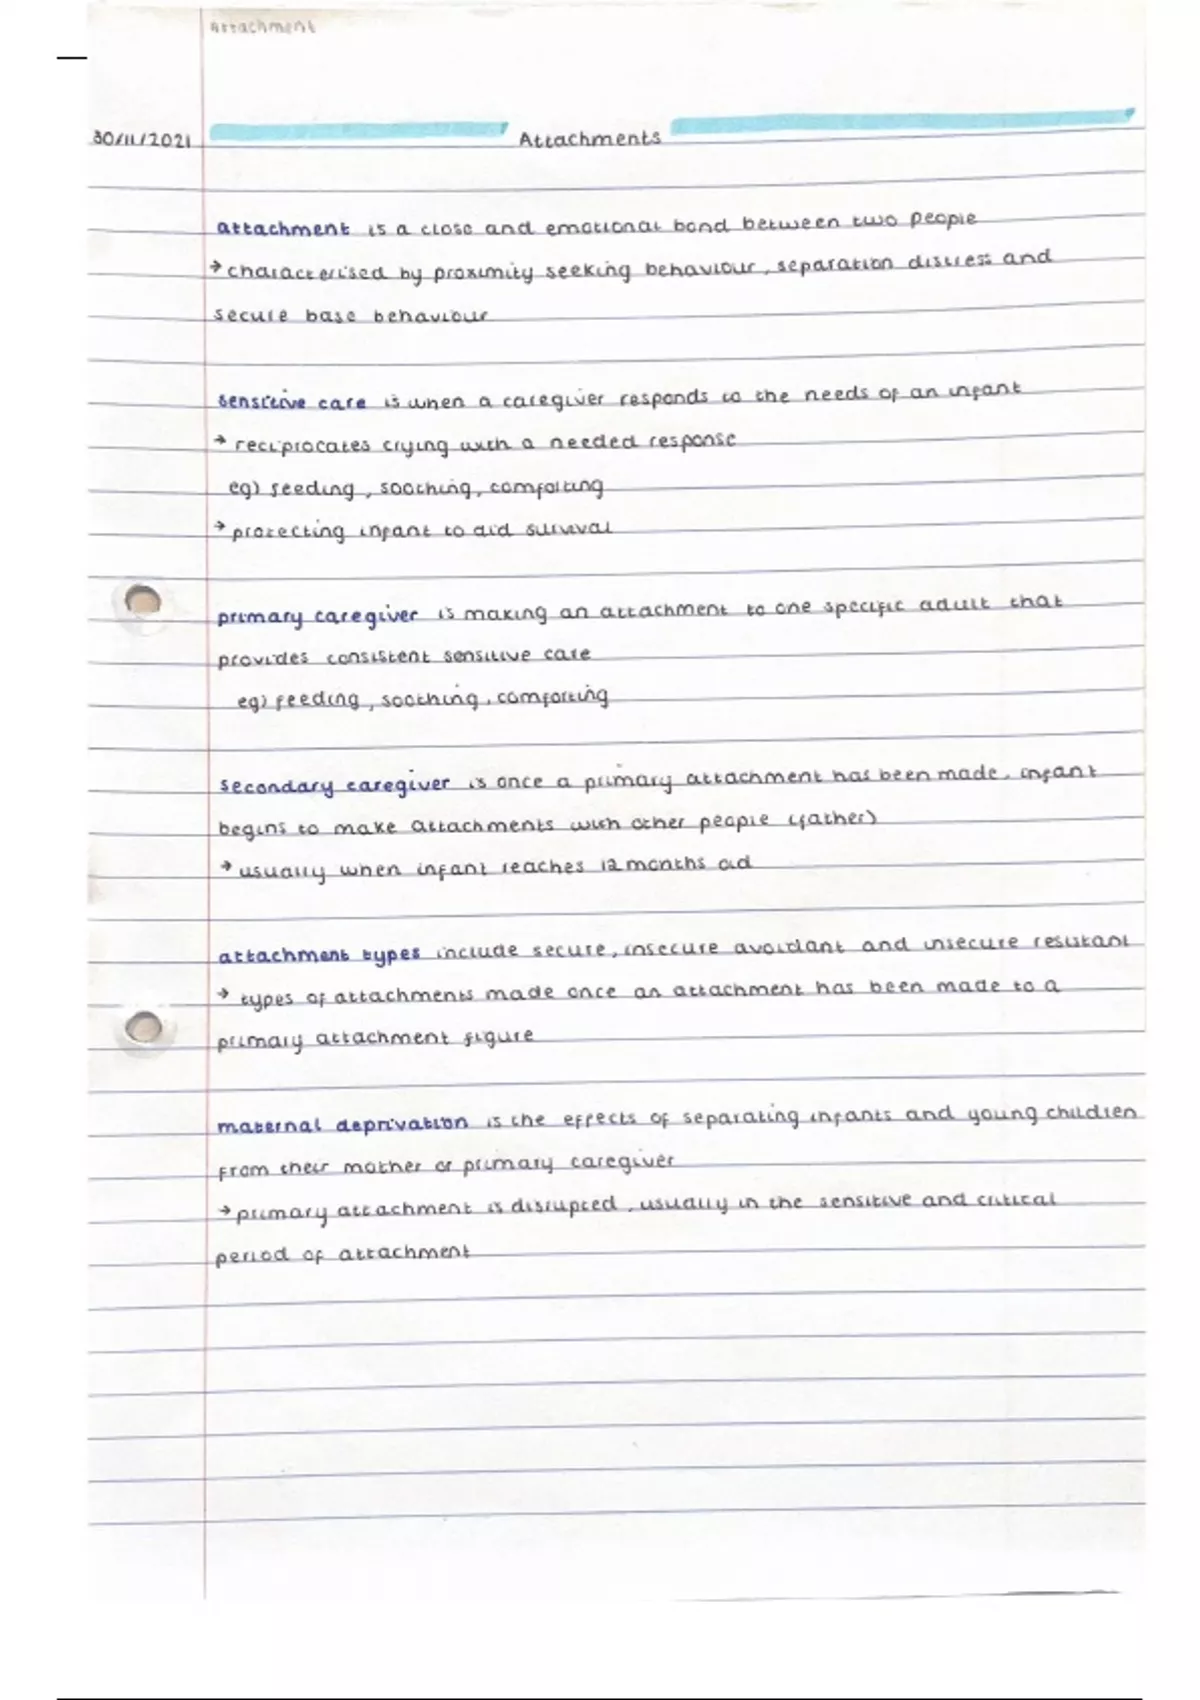 Attachment
30/11/2021 Attachments
attachment is a close and emotional bond between two people
→ characterised by proximity seeking behaviour, separation distress and
secure base behaviour
sensitive care is when a caregiver responds to the needs of an infant
→ reciprocates crying with a needed response
eg) feeding, soothing, comforting
→ protecting infant to aid survival
primary caregiver is making an attachment to one specific adult that
provides consistent sensitive care
eg) feeding, soothing, comforting
secondary caregiver is once a primary attachment has been made, infant
begins to make attachments with other people (father)
→ usually when infant reaches 12 months old
attachment types include secure, insecure avoidant and insecure resistant
→ types of attachments made once an attachment has been made to a
primary attachment figure
maternal deprivation is the effects of separating infants and young children
from their mother or primary caregiver
→ primary attachment is disrupted, usually in the sensitive and critical
period of attachment